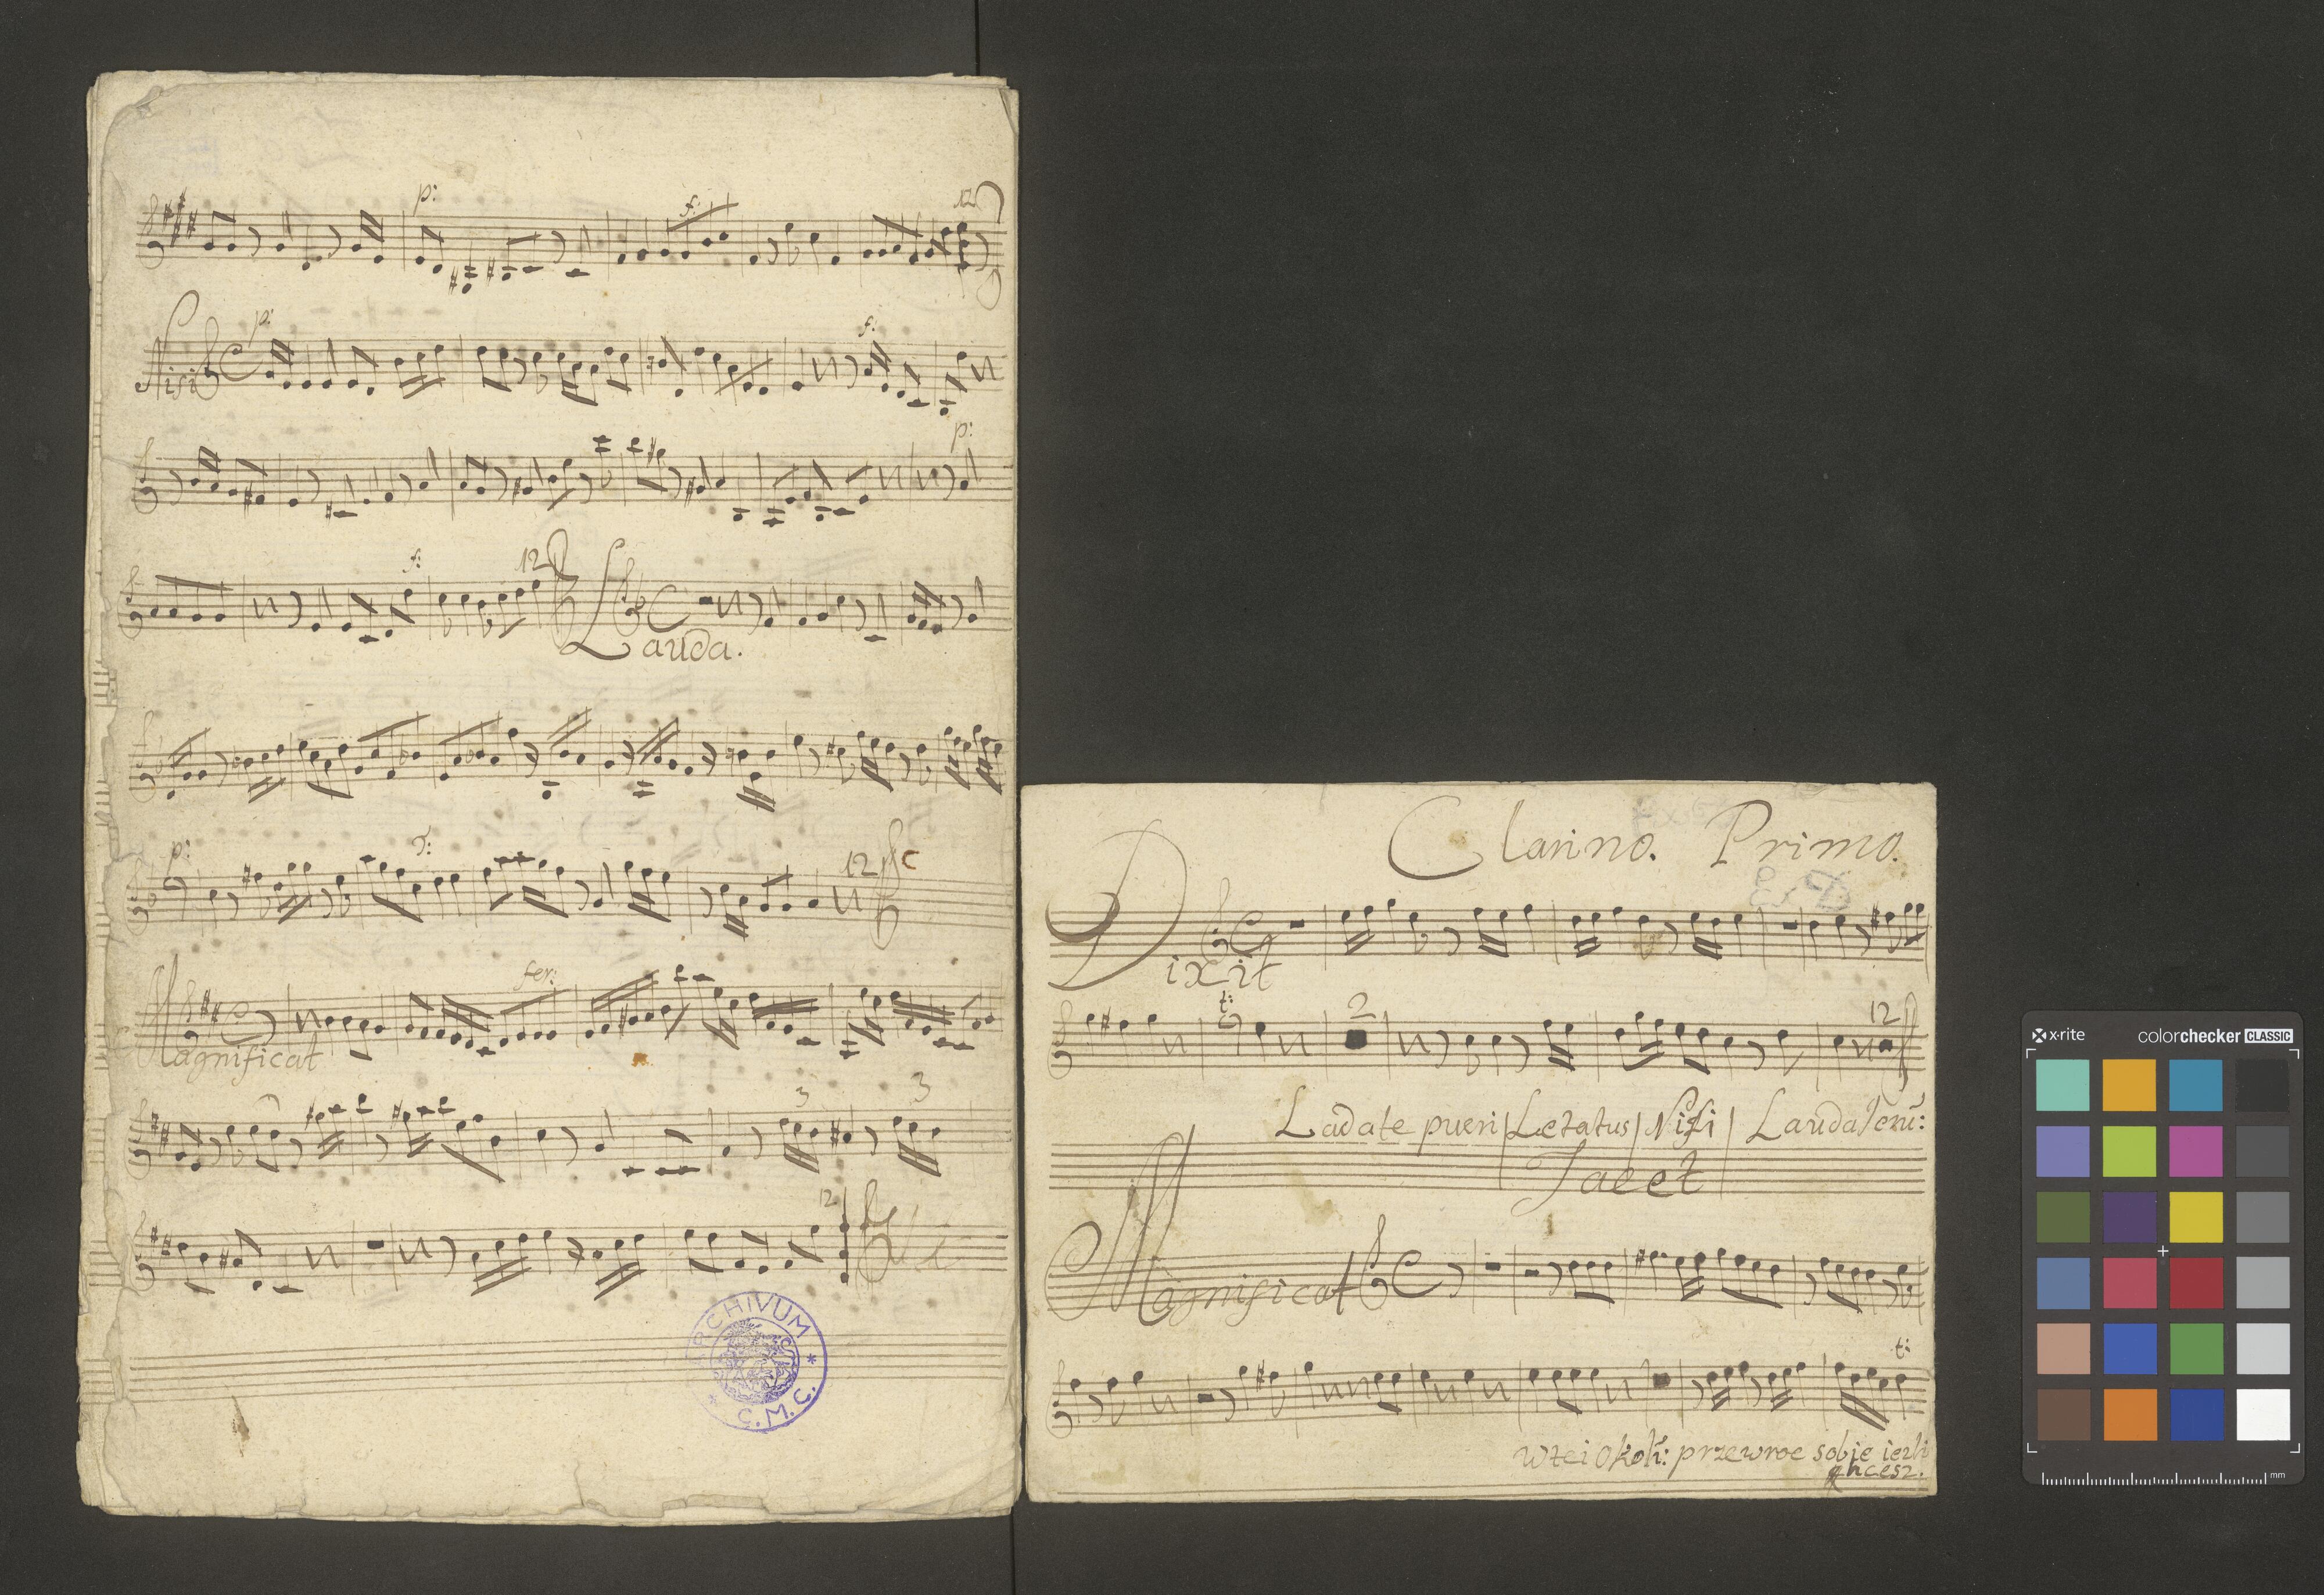 p: f. 12
Nisi p: f:
p:
f: 12
Lauda.
p: 12
Magnificat for:
3 3
12
ARCHIVUM
* C.M.C. *
Clarino. Primo.
Dixit
t: 2 12
Ladate pueri / Letatus / Nisi / Lauda Jerū:
Tacet
Magnificat
t:
przewroc sobie ieżli
chcesz.
x-rite colorchecker CLASSIC
mm